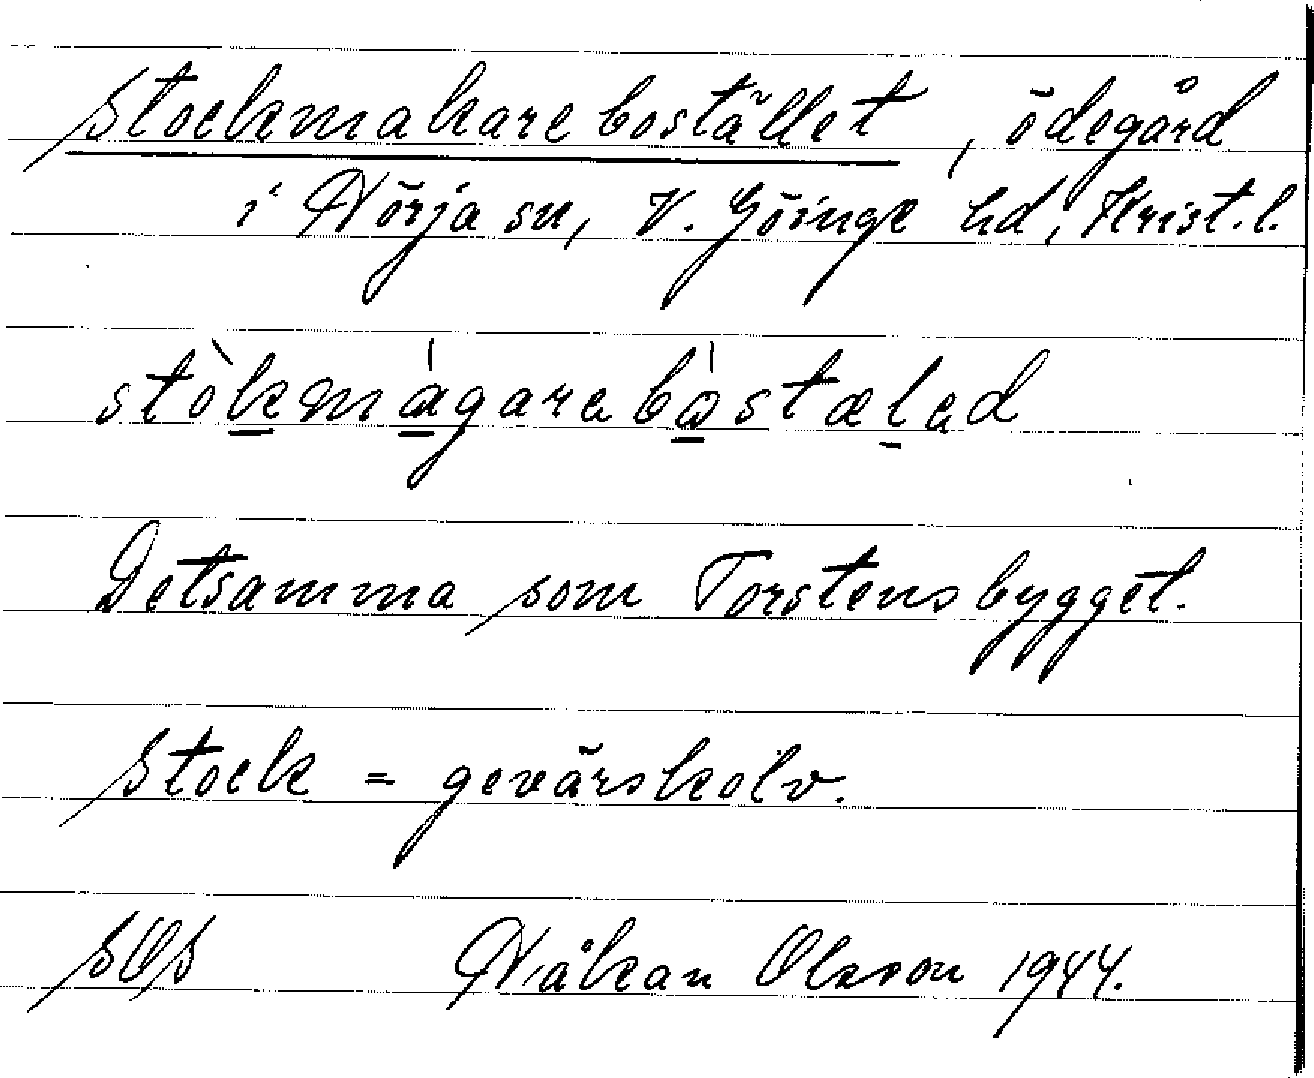 Stockmakarebostället, ödegård
i Nörja sn, V. Göinge hd, Krist. l.
stòkmàgarebòstælad
Detsamma som Torstensbygget.
Stock = gevärskolv.
SOS Håkan Olsson 1944.